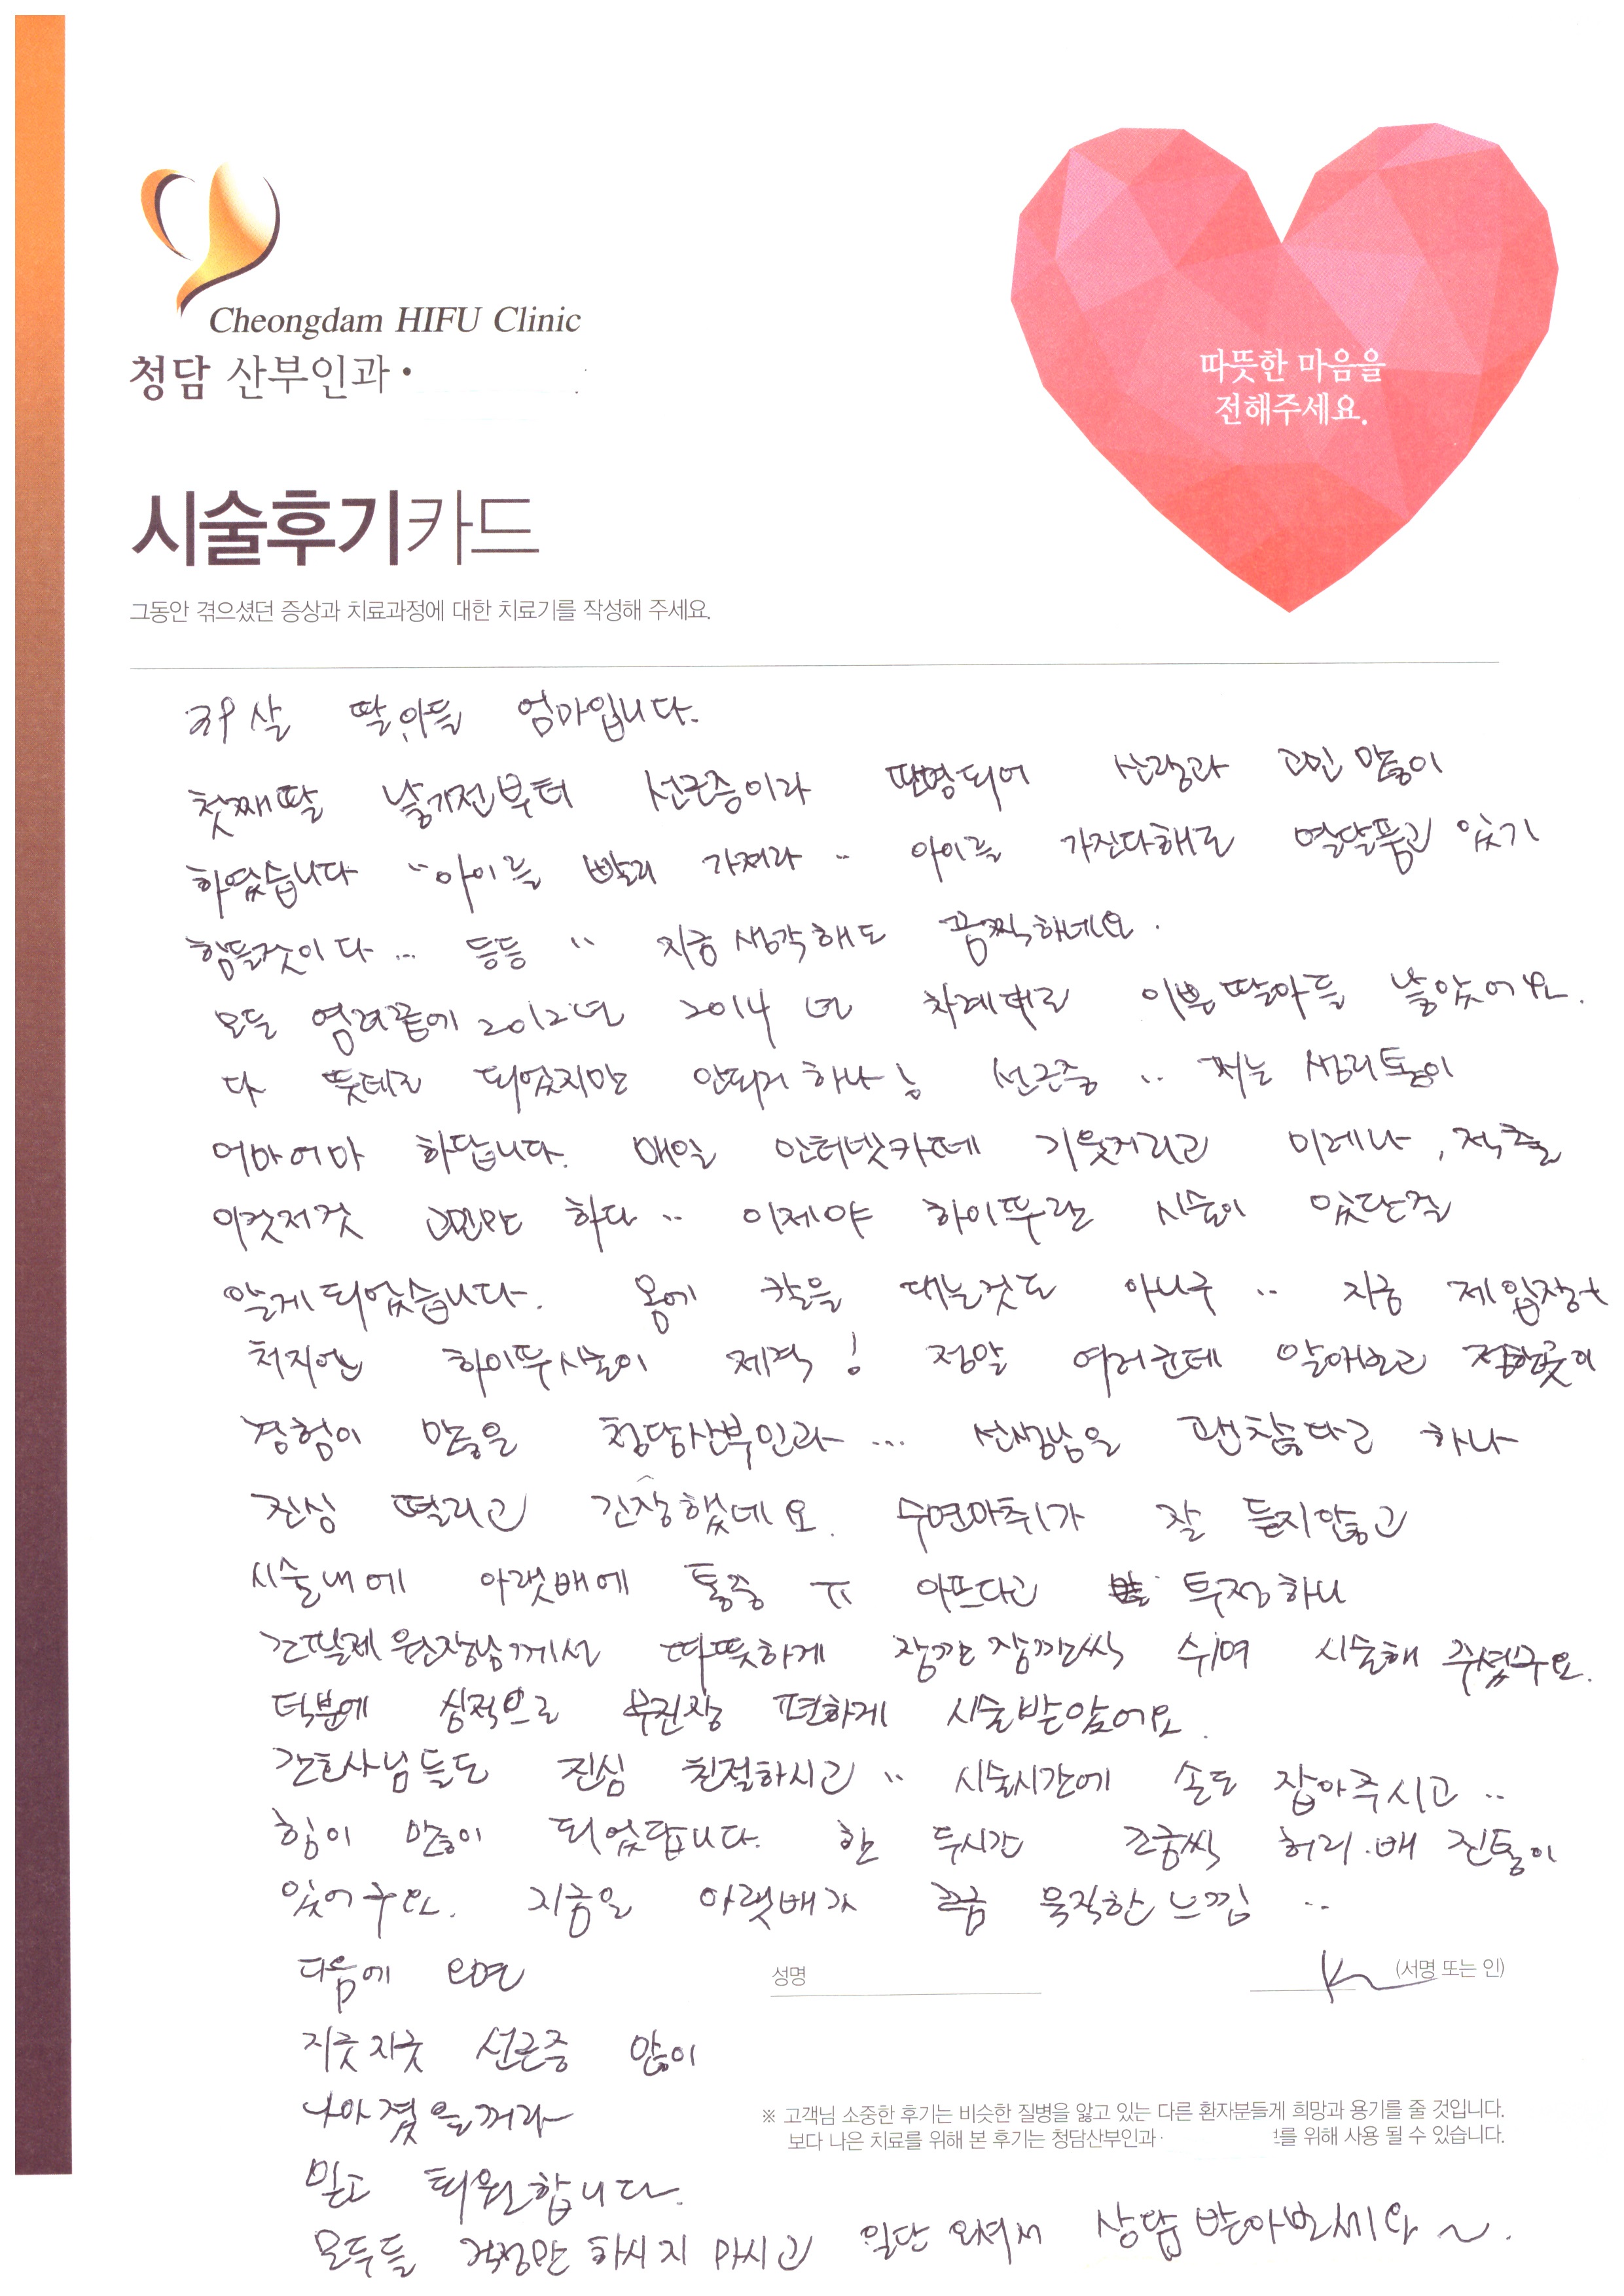 Cheongdam HIFU Clinic
청담 산부인과·
따뜻한 마음을
전해주세요.
시술후기카드
그동안 겪으셨던 증상과 치료과정에 대한 치료기를 작성해 주세요.
살 딸,아들 엄마입니다.
첫째딸 낳기전부터 선근증이라 판명되어 신랑과 고민 많이
하였습니다 "아이를 빨리 가져라 .. 아이를 가진다해도 열달품고 있기
힘들것이다... 등등 " 지금 생각해도 끔찍하네요.
모든 염려끝에 2012년 2014년 차례대로 이쁜 딸아들 낳았어요.
다 뜻데로 되었지만 안되거 하나! 선근증 .. 저는 생리통이
어마어마 하답니다. 매일 인터넷카페 기웃거리고 미레나, 적출
이것저것 고민만 하다.. 이제야 하이푸란 시술이 있단걸
알게되었습니다. 몸에 칼을 대는것도 아니구 .. 지금 제입장
처지엔 하이푸시술이 제격! 정말 여러군데 알아보고
경험이 많은 청담산부인과... 선생님은 괜찮다고 하나
진심 떨리고 긴장했네요. 수면마취가 잘 듣지않고
시술내에 아랫배에 통증 ㅠ 아프다고 투정하니
원장님께서 따뜻하게 잠깐 잠깐씩 쉬며 시술해 주셨구요.
덕분에 심적으로 무진장 편하게 시술받았어요.
간호사님들도 진심 친절하시고 .. 시술시간에 손도 잡아주시고..
힘이 많이 되었답니다. 한 두시간 조금씩 허리.배 진통이
있어구요. 지금은 아랫배가 조금 묵직한 느낌 ..
다음에 오면
성명
(서명 또는 인)
지긋지긋 선근증 많이
나아졌을꺼라
※ 고객님 소중한 후기는 비슷한 질병을 앓고 있는 다른 환자분들께 희망과 용기를 줄 것입니다.
보다 나은 치료를 위해 본 후기는 청담산부인과· 를 위해 사용 될 수 있습니다.
믿고 퇴원합니다.
모두들 걱정만 하시지 마시고 일단 오셔서 상담 받아보세요 ~.